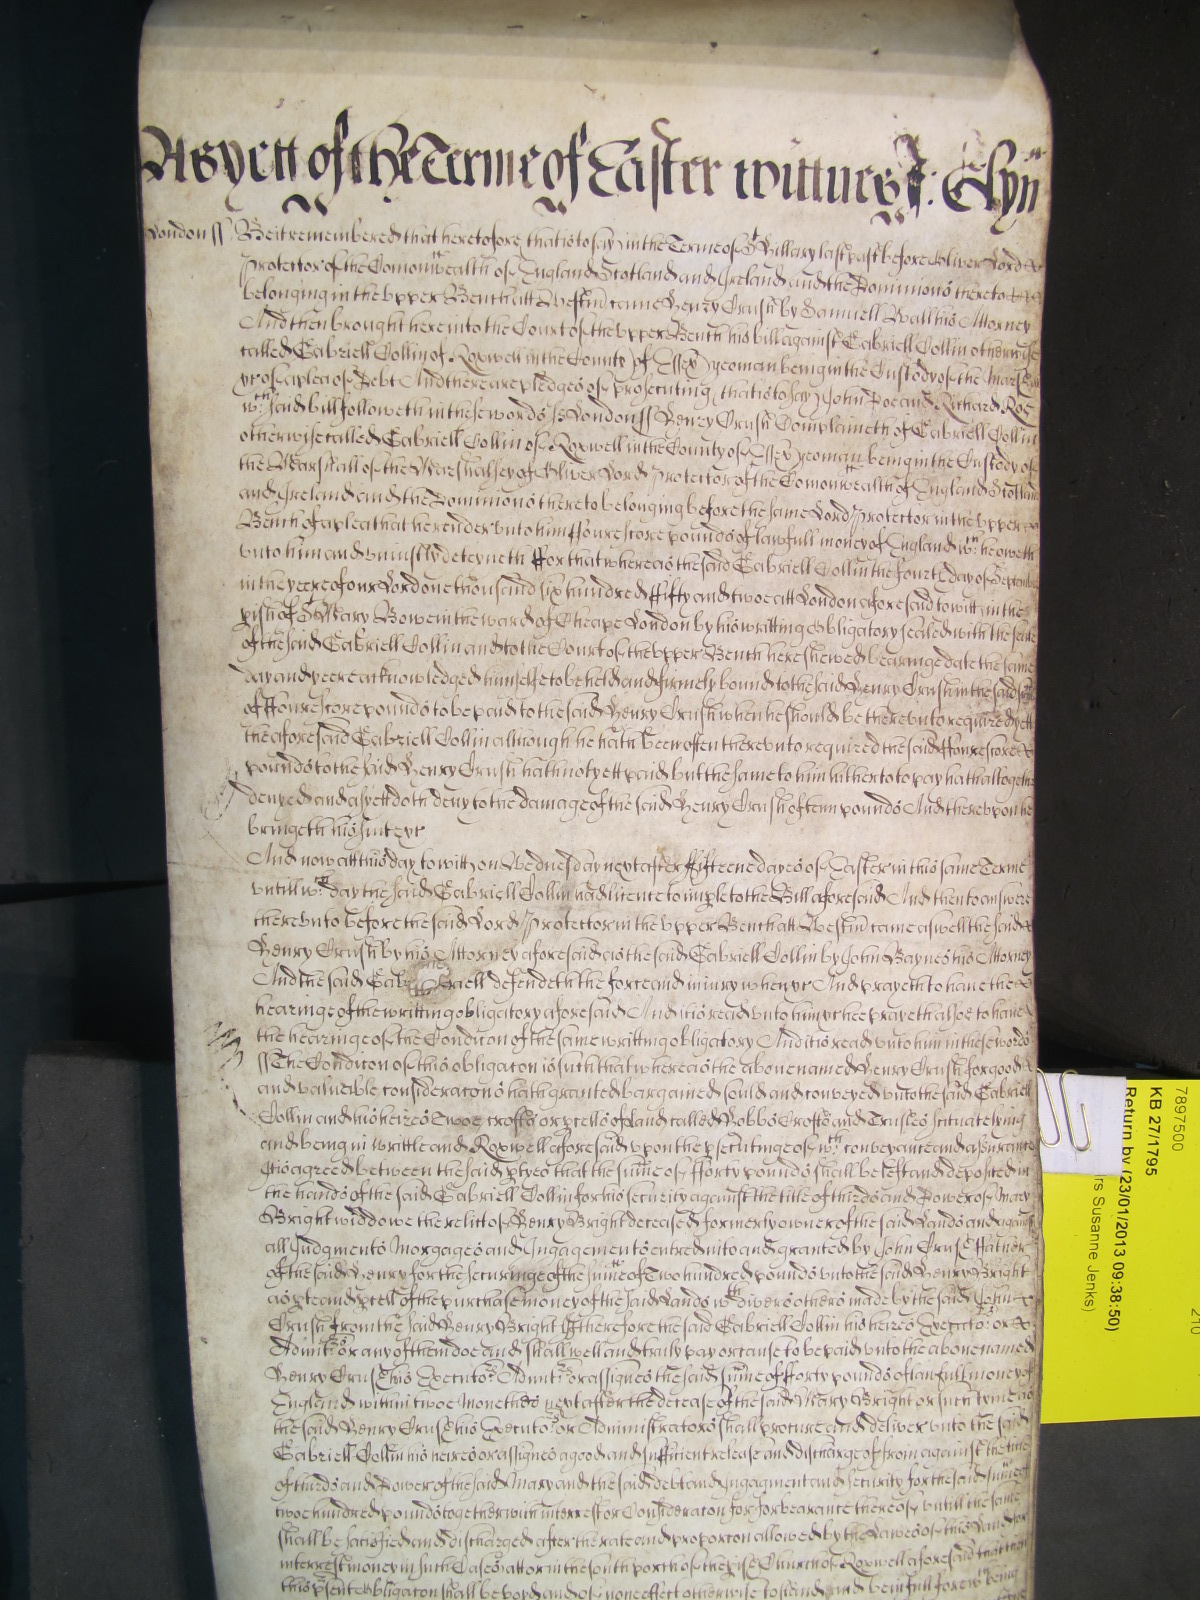 As yett of the Terme of Easter wittnes J: Glyn
London ss Be it remembered that heretofore that is to say in the Terme of St Hillary last past before Oliver Lord
Protector of the Comonwealth of England Scotland and Ireland and the Dominions thereto
belonging in the upper Bench att Westm came Henry Crush by Samuell Wall his Attorney
And then brought here into the Court of the upper Bench his bill against Gabriell Collin otherwise
called Gabriell Collin of Roxwell in the County of Essex yeoman being in the Custody of the Marshall
&c of a plea of Debt And there are pledges of prosecuting that is to say John Doe and Richard Roe
wch said bill followeth in these words ss London ss Henry Crush Complaineth of Gabriell Collin
otherwise called Gabriell Collin of Roxwell in the County of Essex yeoman being in the Custody of
the Marshall of the Marshalsey of Oliver Lord Protector of the Comonwealth of England Scotland
and Ireland and the Dominions thereto belonging before the same Lord Protector in the upper
Bench of a plea that he render unto him ffourescore pounds of lawfull money of England wch he oweth
unto him and uniustly deteyneth ffor that whereas the said Gabriell Collin the fourth day of September
in the yeere of our Lord one thousand six hundred ffifty and twoe att London aforesaid to witt in the
pish of St Mary Bowe in the ward of Cheape London by his writting obligatory sealed with the seale
of the said Gabriell Collin and to the Court of the upper Bench here shewed bearinge date the same
day and yeere acknowledged himselfe to be held and firmely bound to the said Henry Crush in the said
of ffourescore pounds to be paid to the said Henry Crush when he should be thereunto required yett
the aforesaid Gabriell Collin although he hath been often thereunto required the said ffourescore
pounds to the said Henry Crush hath not yett paid but the same to him hitherto to pay hath altogether
denyed and as yett doth deny to the damage of the said Henry Crush of tenn pounds And thereupon he
bringeth his suit &c
And now att this day to witt on Wednesday next after ffifteene dayes of Easter in this same Terme
untill wch day the said Gabriell Collin had licence to imple to the Bill aforesaid And then to answere
thereunto before the said Lord Protector in the upper Bench att Westm came aswell the said
Henry Crush by his Attorney aforesaid as the said Gabriell Collin by John Baynes his Attorney
And the said Gabriell defendeth the force and iniury when &c And prayeth to have the
hearinge of the writting obligatory aforesaid And it is read unto him &c hee prayeth alsoe to have
the hearinge of the Condicon of the same writting obligatory And it is read unto him in these words
ss The Condicon of this obligacon is such that whereas the abovenamed Henry Crush for good
and valueible consideracons hath granted bargained sould and conveyed unto the said Gabriell
Collin and his heires Twoe croftes or pcells of land called Hobbs Crofts and Tensles scituate lying
and being in writtle and Roxwell aforesaid upon the psecutinge of wch conveyance and assurance
it is agreed between the said ptyes that the sume of fforty pounds shall be left and deposited in
the hands of the said Gabriell Collin for his security against the title of thirds and Dower of Mary
Bright widdowe the relict of Henry Bright deceased formerly owner of the said Lands and against
all Judgments Morgages and Ingagements entred into and granted by John Crush ffather
of the said Henry for the securinge of the sume of Two hundred pounds unto the said Henry Bright
as pte and pcell of the purchase money of the said Lands wth divers others made by the said John
Crush from the said Henry Bright If therefore the said Gabriell Collin his heires Executors or
Admitrs or any of them doe and shall well and truly pay or cause to be paid unto the abovenamed
Henry Crush his Executors Admitrs or assignes the said sume of fforty pounds of lawfull money of
England within twoe monethes next after the decease of the said Mary Bright or such tyme as
the said Henry Crush his Executors or Administrators shall procure and deliver unto the said
Gabriell Collin his heires or assignes a good and sufficient release and discharge of from against the title
of thirds and Dower of the said Mary and the said debt and Ingagement and security for the said sume of
twoe hundred pounds together with interrest or Consideracon for forbearance thereof untill the same
shall be satisfied and discharged after the rate and proporcon allowed by the Lawes of this Land for
interrest money in such Cases att or in the south porch of the pish Church of Roxwell aforesaid that then
this psent obligacon shall be voyd and of none effect otherwise to stand and be in full force
7897500
KB 27/1795
Return by (23/01/2013 09:38:50)
rs Susanne Jenks)
210